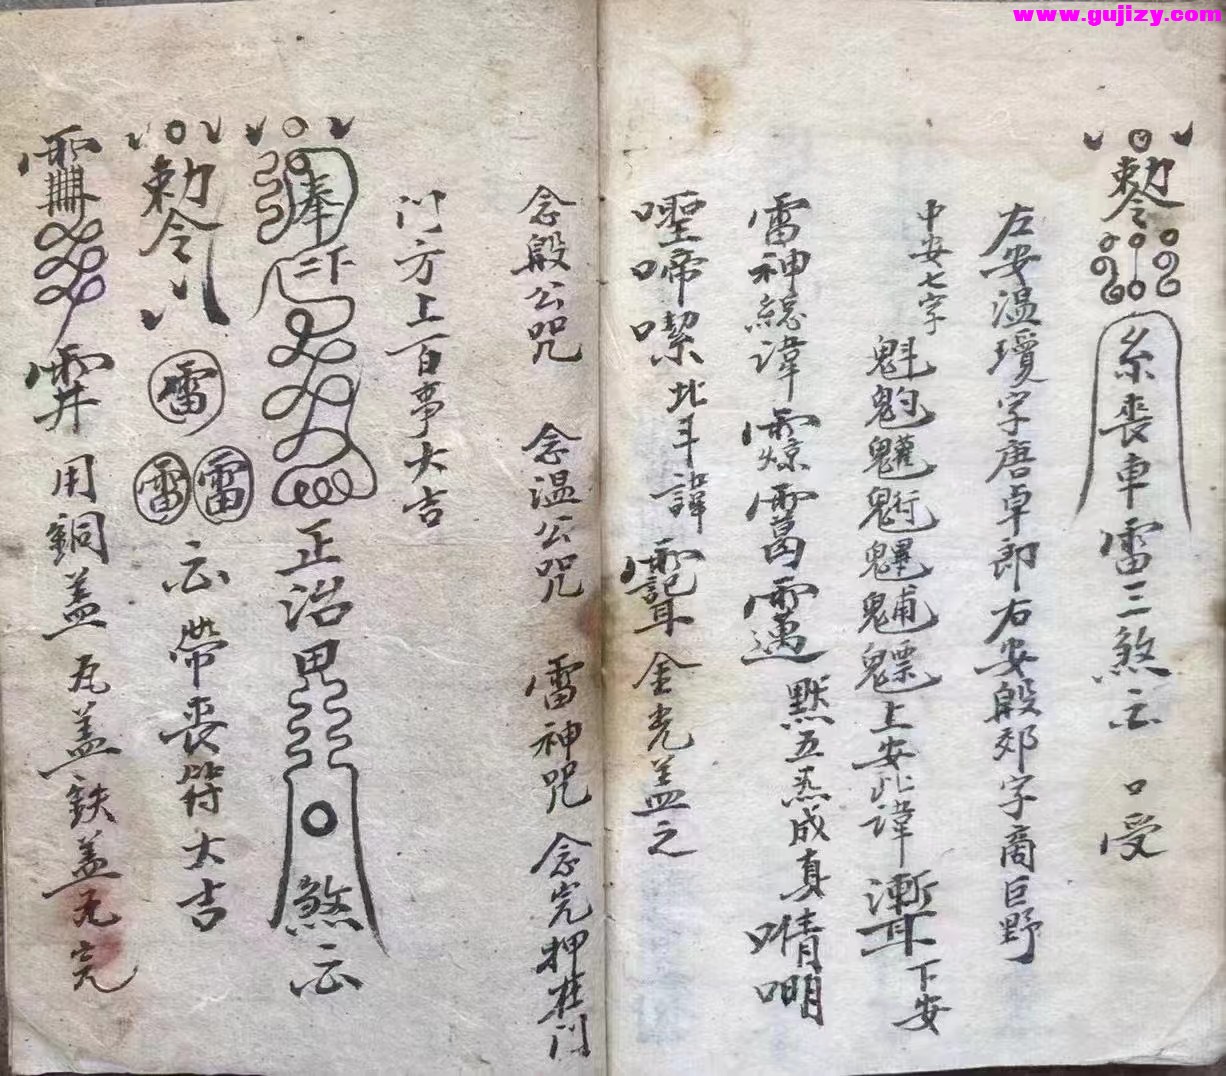 www.gujizy.com
勅令糸喪車雷三煞 口受
左安温瓊字唐卓郎右安殷郊字商巨野
中安七字 魁䰢魓魒上安此諱 下安
雷神総諱 默五炁成真
啼喫北斗諱 金光盖之
念殷公咒 念温公咒 雷神咒 念完押在门
门方上一百事大吉
奉 正治甲 煞
勅令 雷 雷 雷 帶喪符大吉
用銅盖瓦盖鉄盖瓦完